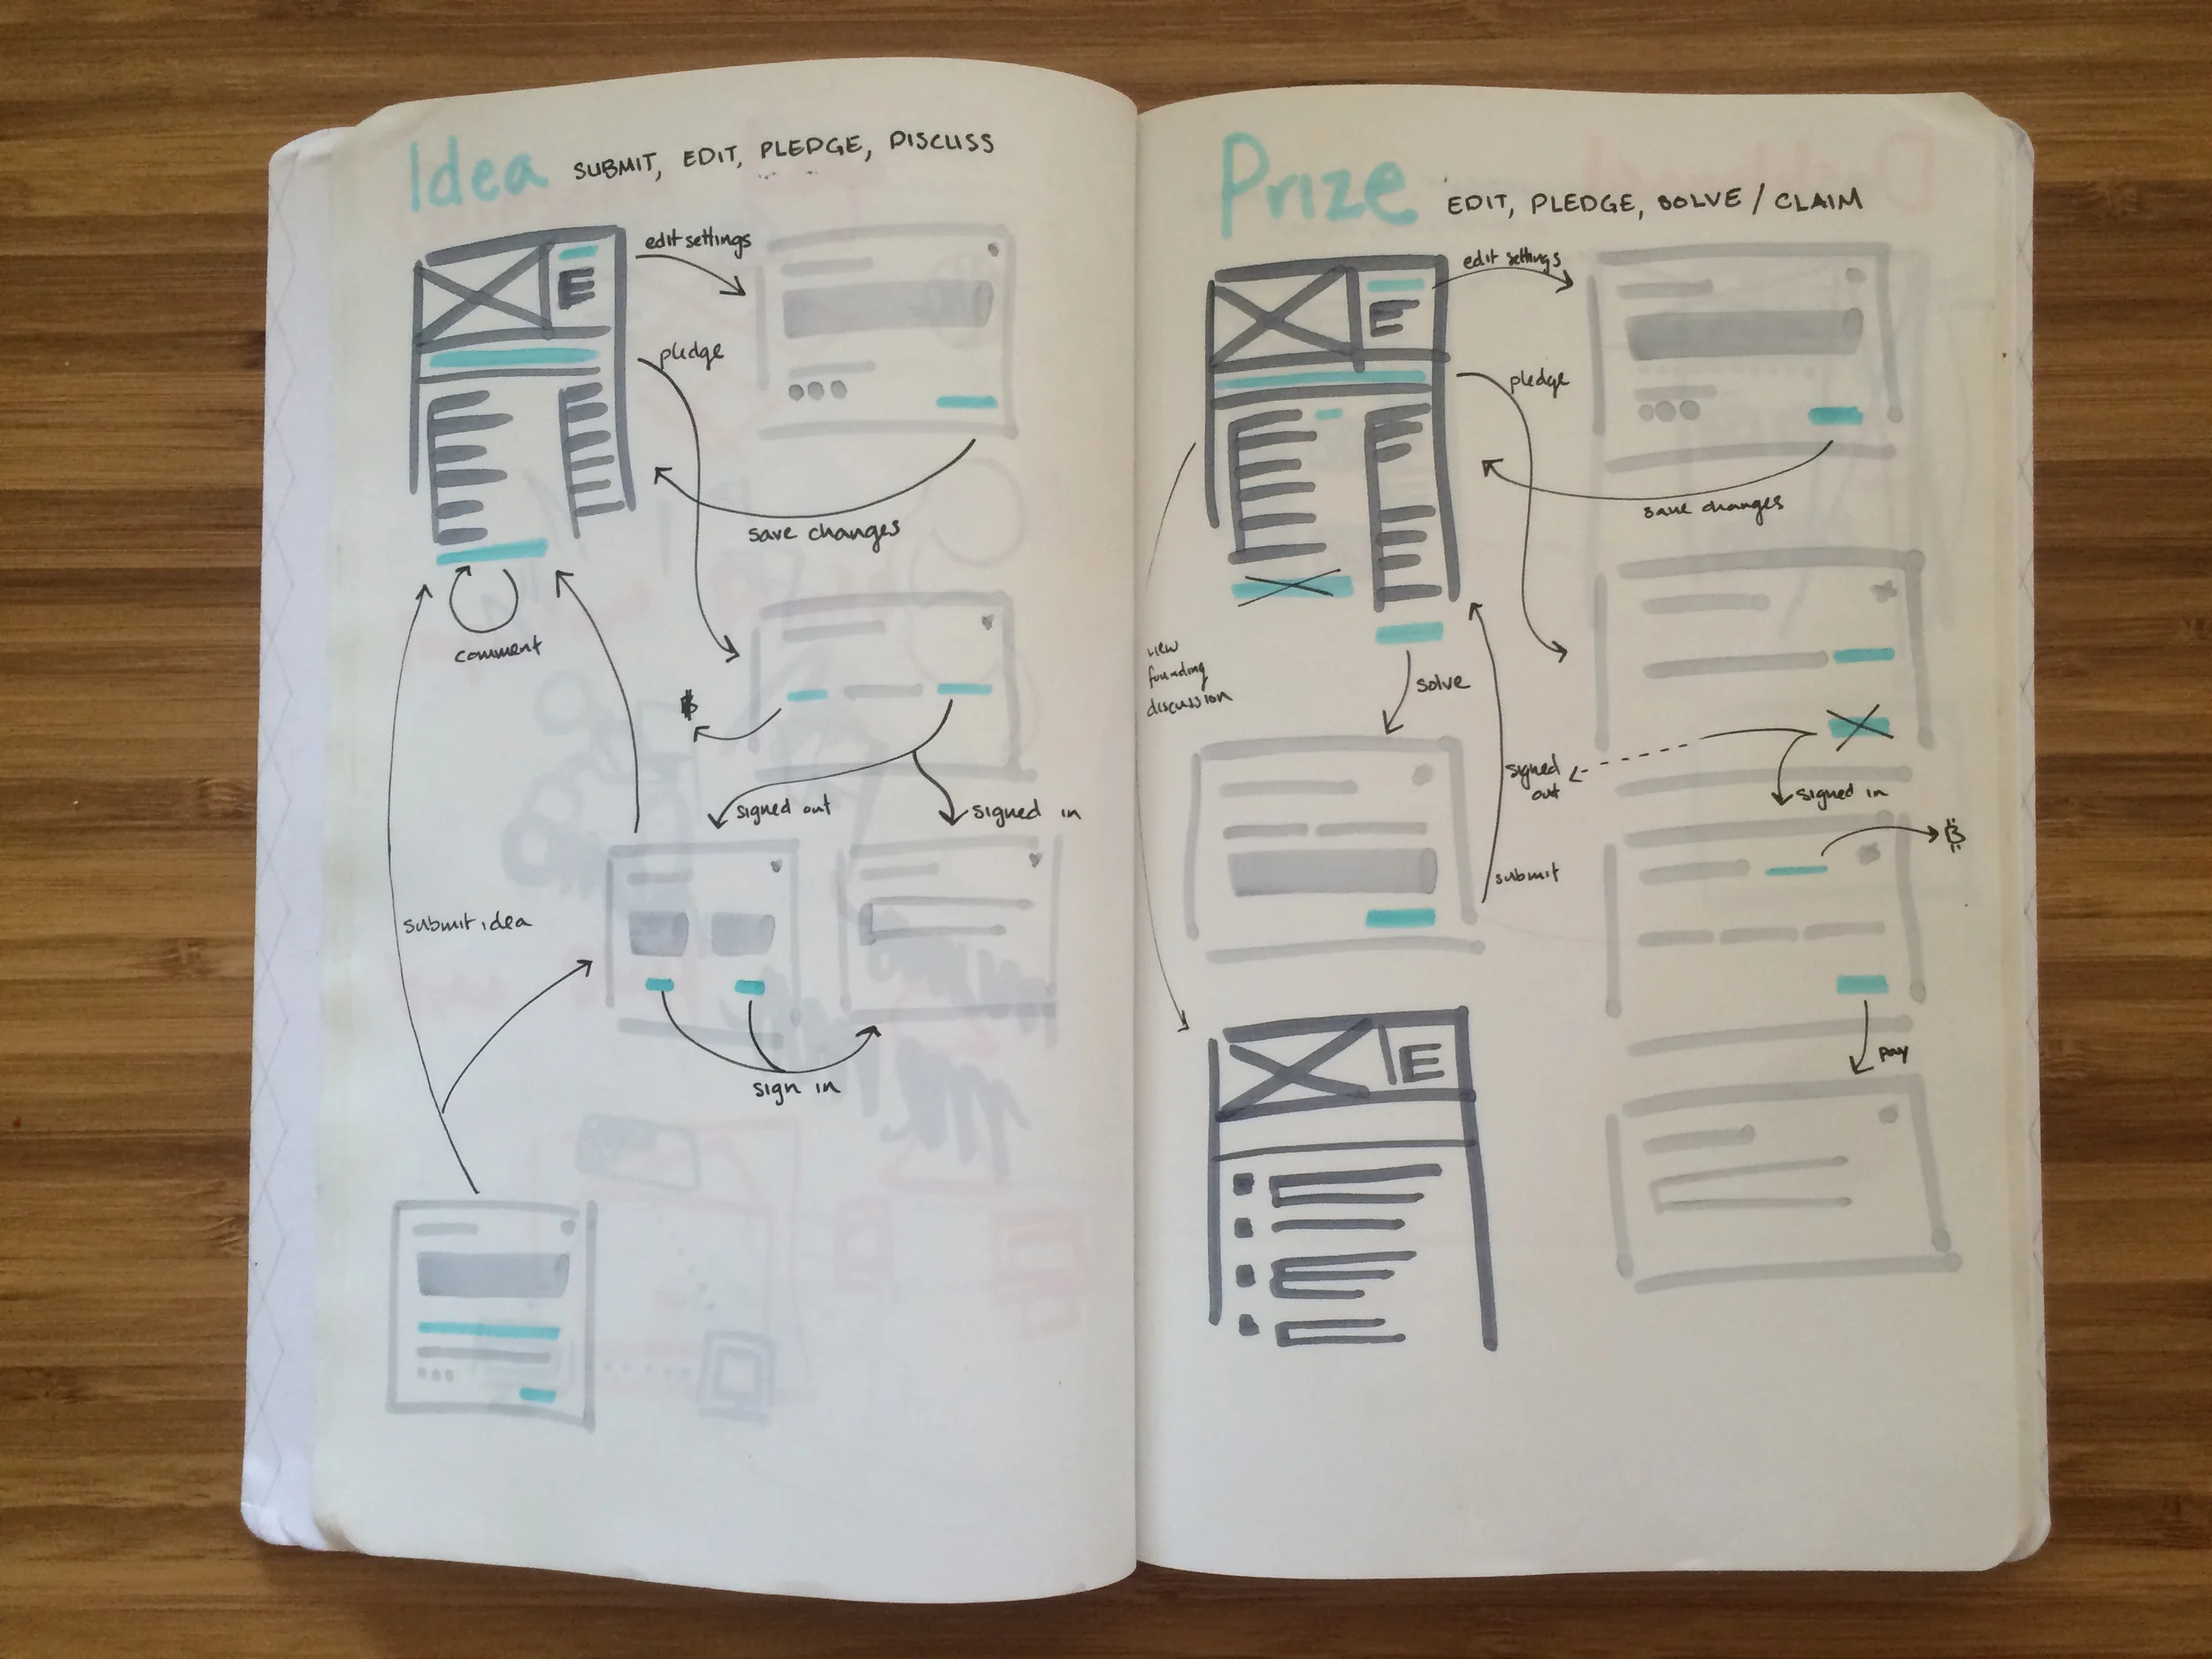 Idea SUBMIT, EDIT, PLEDGE, DISCUSS
edit settings
pledge
save changes
comment
฿
signed out
signed in
submit idea
sign in
Prize EDIT, PLEDGE, SOLVE / CLAIM
edit settings
pledge
save changes
view
founding
discussion
solve
signed
out
signed in
฿
submit
pay